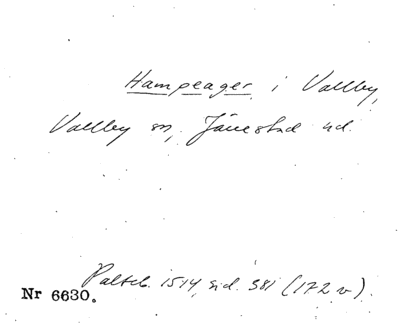 Hampeager i Vallby,
Vallby sn, Järrestad hd.
Paltsb. 1514, sid. 381 (172 v).
Nr 6630.